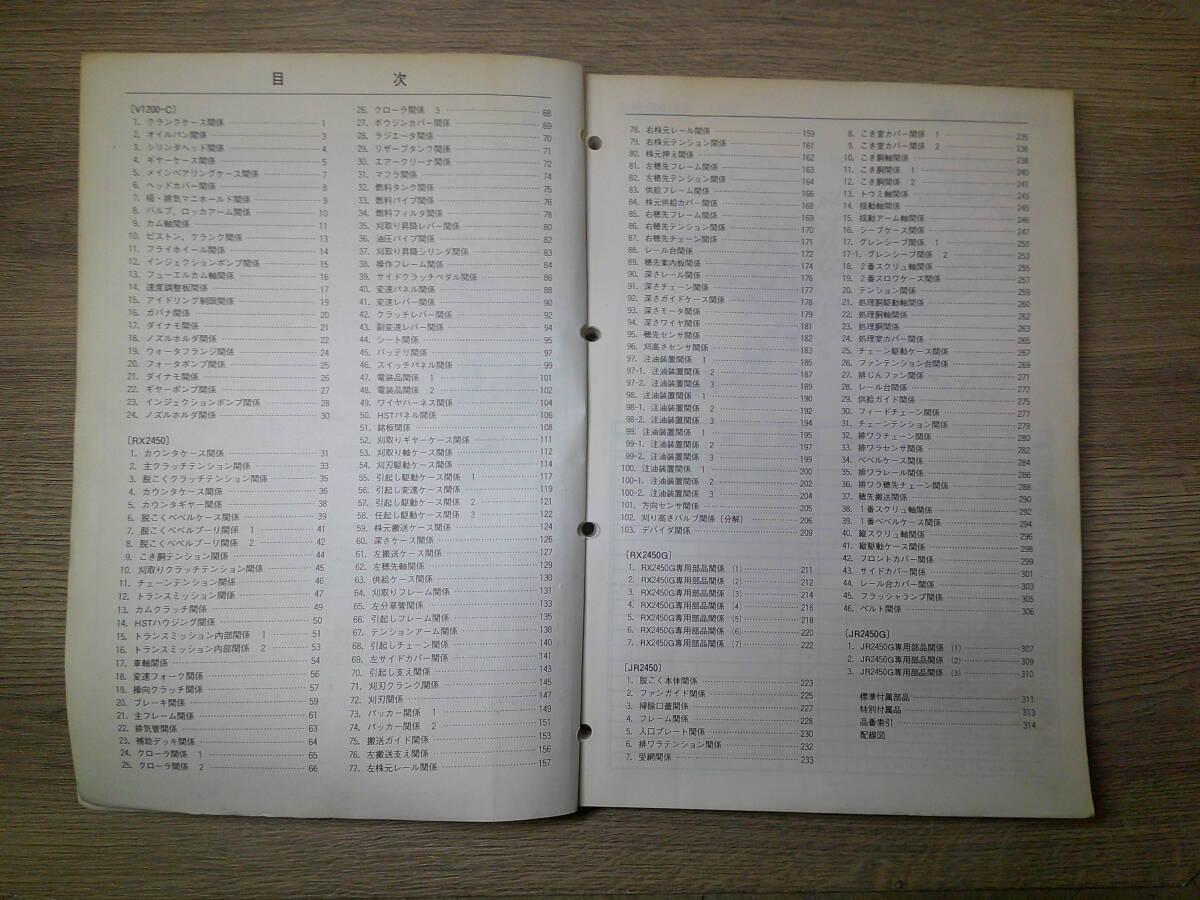 目 次
[V1200-C]
1. クランクケース関係 1
2. オイルパン関係 3
3. シリンダヘッド関係 4
4. ギヤーケース関係 5
5. メインベアリングケース関係 7
6. ヘッドカバー関係 8
7. 吸・排気マニホールド関係 9
8. バルブ、ロッカアーム関係 10
9. カム軸関係 11
10. ピストン、クランク関係 13
11. フライホイール関係 14
12. インジェクションポンプ関係 15
13. フューエルカム軸関係 16
14. 速度調整板関係 17
15. アイドリング制限関係 19
16. ガバナ関係 20
17. ダイナモ関係 21
18. ノズルホルダ関係 22
19. ウォータフランジ関係 24
20. フォータポンプ関係 25
21. ダイナモ関係 26
22. ギヤーポンプ関係 27
23. インジェクションポンプ関係 28
24. ノズルホルダ関係 30
[RX2450]
1. カウンタケース関係 31
2. 主クラッチテンション関係 33
3. 脱こくクラッチテンション関係 35
4. カウンタケース関係 36
5. カウンタギヤー関係 38
6. 脱こくベベルケース関係 39
7. 脱こくベベルプーリ関係 1 41
8. 脱こくベベルプーリ関係 2 42
9. こき胴テンション関係 44
10. 刈取りクラッチテンション関係 45
11. チェーンテンション関係 46
12. トランスミッション関係 47
13. カムクラッチ関係 49
14. HSTハウジング関係 50
15. トランスミッション内部関係 1 51
16. トランスミッション内部関係 2 53
17. 車軸関係 54
18. 変速フォーク関係 56
19. 操向クラッチ関係 57
20. ブレーキ関係 59
21. 主フレーム関係 61
22. 排気管関係 63
23. 補助デッキ関係 64
24. クローラ関係 1 65
25. クローラ関係 2 66
26. クローラ関係 3 68
27. ボウジンカバー関係 69
28. ラジエータ関係 70
29. リザーブタンク関係 71
30. エアークリーナ関係 72
31. マフラ関係 74
32. 燃料タンク関係 75
33. 燃料パイプ関係 76
34. 燃料フィルタ関係 78
35. 刈取り昇降レバー関係 80
36. 油圧パイプ関係 82
37. 刈取り昇降シリンダ関係 83
38. 操作フレーム関係 84
39. サイドクラッチペダル関係 86
40. 変速パネル関係 88
41. 変速レバー関係 90
42. クラッチレバー関係 92
43. 副変速レバー関係 94
44. シート関係 95
45. バッテリ関係 97
46. スイッチパネル関係 99
47. 電装品関係 1 101
48. 電装品関係 2 102
49. ワイヤハーネス関係 104
50. HSTパネル関係 106
51. 銘板関係 108
52. 刈取りギヤーケース関係 111
53. 刈取り軸ケース関係 112
54. 刈刃駆動ケース関係 114
55. 引起し駆動ケース関係 1 117
56. 引起し変速ケース関係 119
57. 引起し駆動ケース関係 2 121
58. 任起し駆動ケース関係 3 122
59. 株元搬送ケース関係 124
60. 深さケース関係 126
61. 左搬送ケース関係 127
62. 左穂先軸関係 129
63. 供給ケース関係 130
64. 刈取りフレーム関係 131
65. 左分草管関係 133
66. 引起しフレーム関係 135
67. テンションアーム関係 138
68. 引起しチェーン関係 140
69. 左サイドカバー関係 141
70. 引起し支え関係 143
71. 刈刃クランク関係 145
72. 刈刃関係 147
73. パッカー関係 1 149
74. パッカー関係 2 151
75. 搬送ガイド関係 153
76. 左搬送支え関係 156
77. 左株元レール関係 157
78. 右株元レール関係 159
79. 右株元テンション関係 161
80. 株元押え関係 162
81. 左穂先フレーム関係 163
82. 左穂先テンション関係 164
83. 供給フレーム関係 166
84. 株元供給カバー関係 168
85. 右穂先フレーム関係 169
86. 右穂先テンション関係 170
87. 右穂先チェーン関係 171
88. レール台関係 172
89. 穂先案内板関係 174
90. 深さレール関係 176
91. 深さチェーン関係 177
92. 深さガイドケース関係 178
93. 深さモータ関係 179
94. 深さワイヤ関係 181
95. 穂先センサ関係 182
96. 刈高さセンサ関係 183
97. 注油装置関係 1 185
97-1. 注油装置関係 2 187
97-2. 注油装置関係 3 189
98. 注油装置関係 1 190
98-1. 注油装置関係 2 192
98-2. 注油装置関係 3 194
99. 注油装置関係 1 195
99-1. 注油装置関係 2 197
99-2. 注油装置関係 3 199
100. 注油装置関係 1 200
100-1. 注油装置関係 2 202
100-2. 注油装置関係 3 204
101. 方向センサ関係 205
102. 刈り高さバルブ関係 [分解] 206
103. デバイダ関係 209
[RX2450G]
1. RX2450G専用部品関係 (1) 211
2. RX2450G専用部品関係 (2) 212
3. RX2450G専用部品関係 (3) 214
4. RX2450G専用部品関係 (4) 216
5. RX2450G専用部品関係 (5) 218
6. RX2450G専用部品関係 (6) 220
7. RX2450G専用部品関係 (7) 222
[JR2450]
1. 脱こく本体関係 223
2. ファンガイド関係 225
3. 掃除口蓋関係 227
4. フレーム関係 228
5. 入口プレート関係 230
6. 排ワラテンション関係 232
7. 受網関係 233
8. こき室カバー関係 1 235
9. こき室カバー関係 2 236
10. こき胴軸関係 238
11. こき胴関係 1 240
12. こき胴関係 2 241
13. トウミ軸関係 243
14. 揺動軸関係 245
15. 揺動アーム軸関係 246
16. シーブケース関係 247
17. グレンシーブ関係 1 250
17-1. グレンシーブ関係 2 253
18. 2番スクリュ軸関係 255
19. 2番スロワケース関係 257
20. テンション関係 259
21. 処理胴駆動軸関係 260
22. 処理胴軸関係 262
23. 処理胴関係 263
24. 処理室カバー関係 265
25. チェーン駆動ケース関係 267
26. ファンテンション台関係 269
27. 排じんファン関係 271
28. レール台関係 272
29. 供給ガイド関係 275
30. フィードチェーン関係 277
31. チェーンテンション関係 279
32. 排ワラチェーン関係 280
33. 排ワラセンサ関係 282
34. ベベルケース関係 284
35. 排ワラレール関係 286
36. 排ワラ穂先チェーン関係 288
37. 穂先搬送関係 290
38. 1番スクリュ軸関係 292
39. 1番ベベルケース関係 294
40. 縦スクリュ軸関係 296
41. 縦駆動ケース関係 298
42. フロントカバー関係 299
43. サイドカバー関係 301
44. レール台カバー関係 303
45. フラッシャランプ関係 305
46. ベルト関係 306
[JR2450G]
1. JR2450G専用部品関係 (1) 307
2. JR2450G専用部品関係 (2) 309
3. JR2450G専用部品関係 (3) 310
標準付属部品 311
特別付属品 313
品番索引 314
配線図